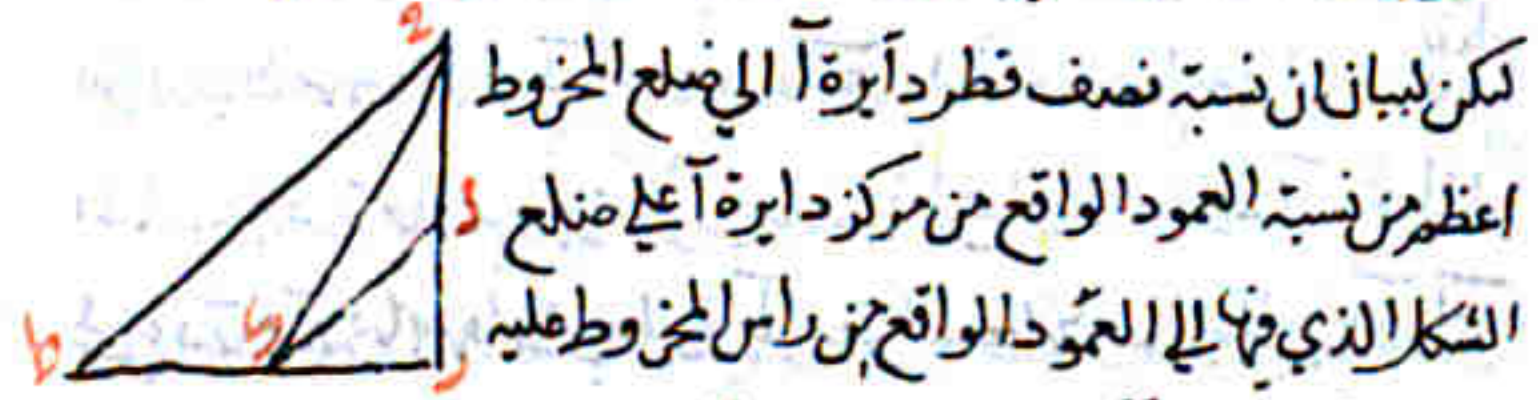 لكن لبيان ان نسبة نصف قطر دآيرة آ الي ضلع المخروط
اعظم من نسبة العمود الواقع من مركز دايرة آ علي ضلع
الشكل الذي فيها الي العمود الواقع من راس المخروط عليه
ط
ى